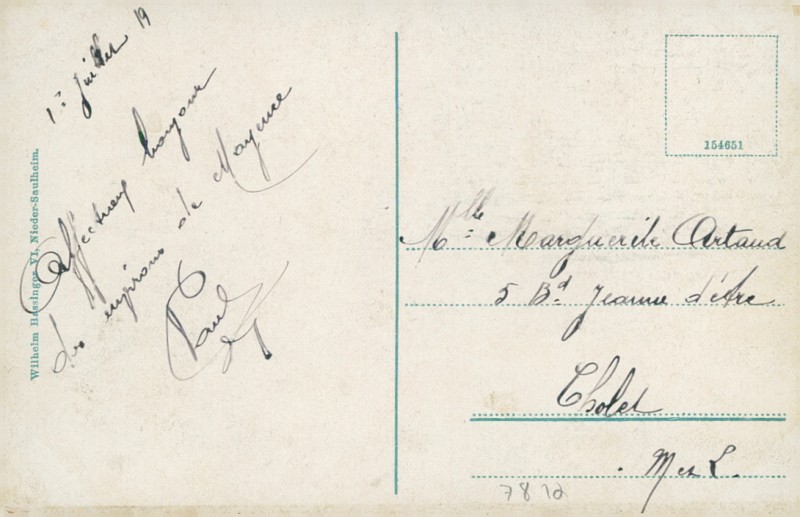 1er Juillet 19
Affectueux bonjour
des environs de Mayence
Paul
Wilhelm Bassinger VI, Nieder-Saulheim.
154651
Mlle Marguerite Artaud
5 Bd Jeanne d'Arc
Cholet
M et L.
78 12